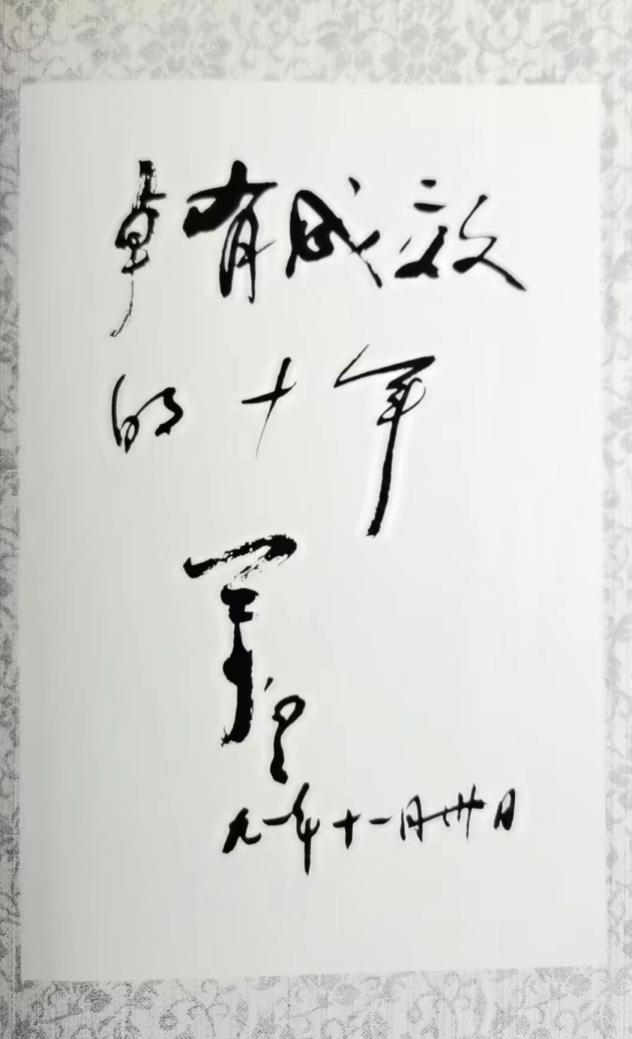 卓有成效
的十年
九一年十一月卅日